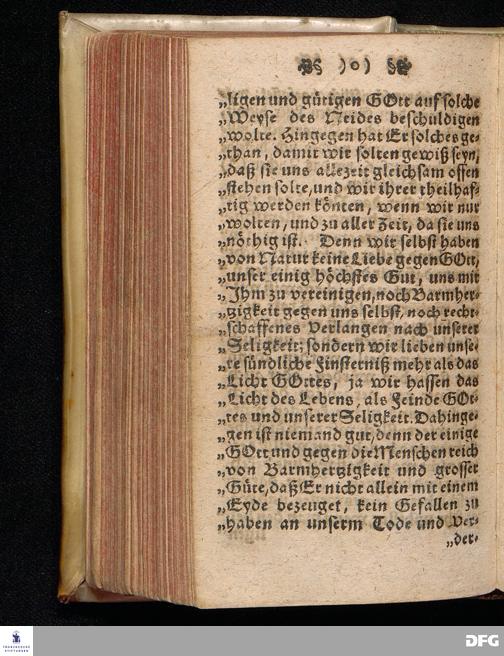 )o(
„ligen und gütigen GOtt auf solche
„Weyse des Neides beschuldigen
„wolte. Hingegen hat Er solches ge-
„than, damit wir solten gewiß seyn,
„daß sie uns allezeit gleichsam offen
„stehen solte, und wir ihrer theilhaf-
„tig werden könten, wenn wir nur
„wolten, und zu aller Zeit, da sie uns
„nöthig ist. Denn wir selbst haben
„von Natur keine Liebe gegen GOtt,
„unser einig höchstes Gut, uns mit
„Ihm zu vereinigen, noch Barmher-
„tzigkeit gegen uns selbst, noch recht-
„schaffenes Verlangen nach unserer
„Seligkeit; sondern wir lieben unse-
„re sündliche Finsterniß mehr als das
„Licht GOttes, ja wir hassen das
„Licht des Lebens, als Feinde GOt-
„tes und unserer Seligkeit. Dahinge-
„gen ist niemand gut, denn der einige
„GOtt und gegen die Menschen reich
„von Barmhertzigkeit und grosser
„Güte, daß Er nicht allein mit einem
„Eyde bezeuget, kein Gefallen zu
„haben an unserm Tode und Ver-
„der-
FRANCKESCHE
STIFTUNGEN
DFG